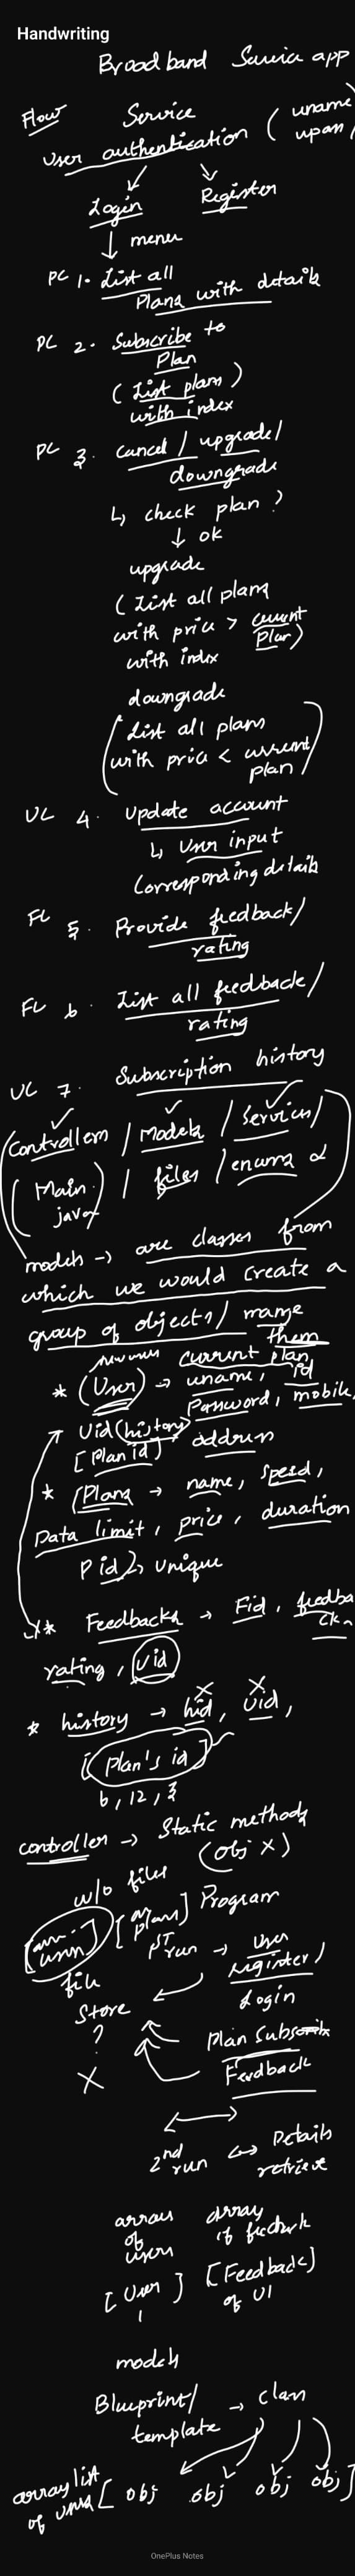 Handwriting
Broadband Service app
Flow Service
User authentication (uname
upass)
Login Register
↓ menu
PC 1. List all
Plans with details
PC 2. Subscribe to
Plan
(List plans)
with index
PC 3. cancel / upgrade /
downgrade
↳ check plan?
↓ ok
upgrade
(List all plans
with price > current
Plan)
with index
downgrade
(List all plans
with price < current
plan)
UC 4. update account
↳ User input
Corresponding details
FC 5. Provide feedback/
rating
FC 6. List all feedback/
rating
UC 7. Subscription history
(Controllers / Models / Services /
(Main. / files / enums &
java)
models → are classes from
which we would create a
group of objects / mange
them
current plan
* (User) → uname, id
Password, mobile,
Uid (history) address
[Plan id]
* (Plans → name, speed,
Data limit, price, duration
P id) → unique
* Feedbacks → Fid, feedba
ck,
rating, Uid
x x
* history → hid, uid,
[Plan's id]
6, 12, 3
controller → Static methods
(obj X)
w/o files
[plans] Program
1st run → User
register/
Login
file
Store
?
X
Plan Subscribe
Feedback
2nd run ↔ Details
retrieve
array array
of of feedback
users
[User] [Feedback]
1 of U1
models
Blueprint/ → class
template
array list
of users [ obj obj obj obj ]
OnePlus Notes